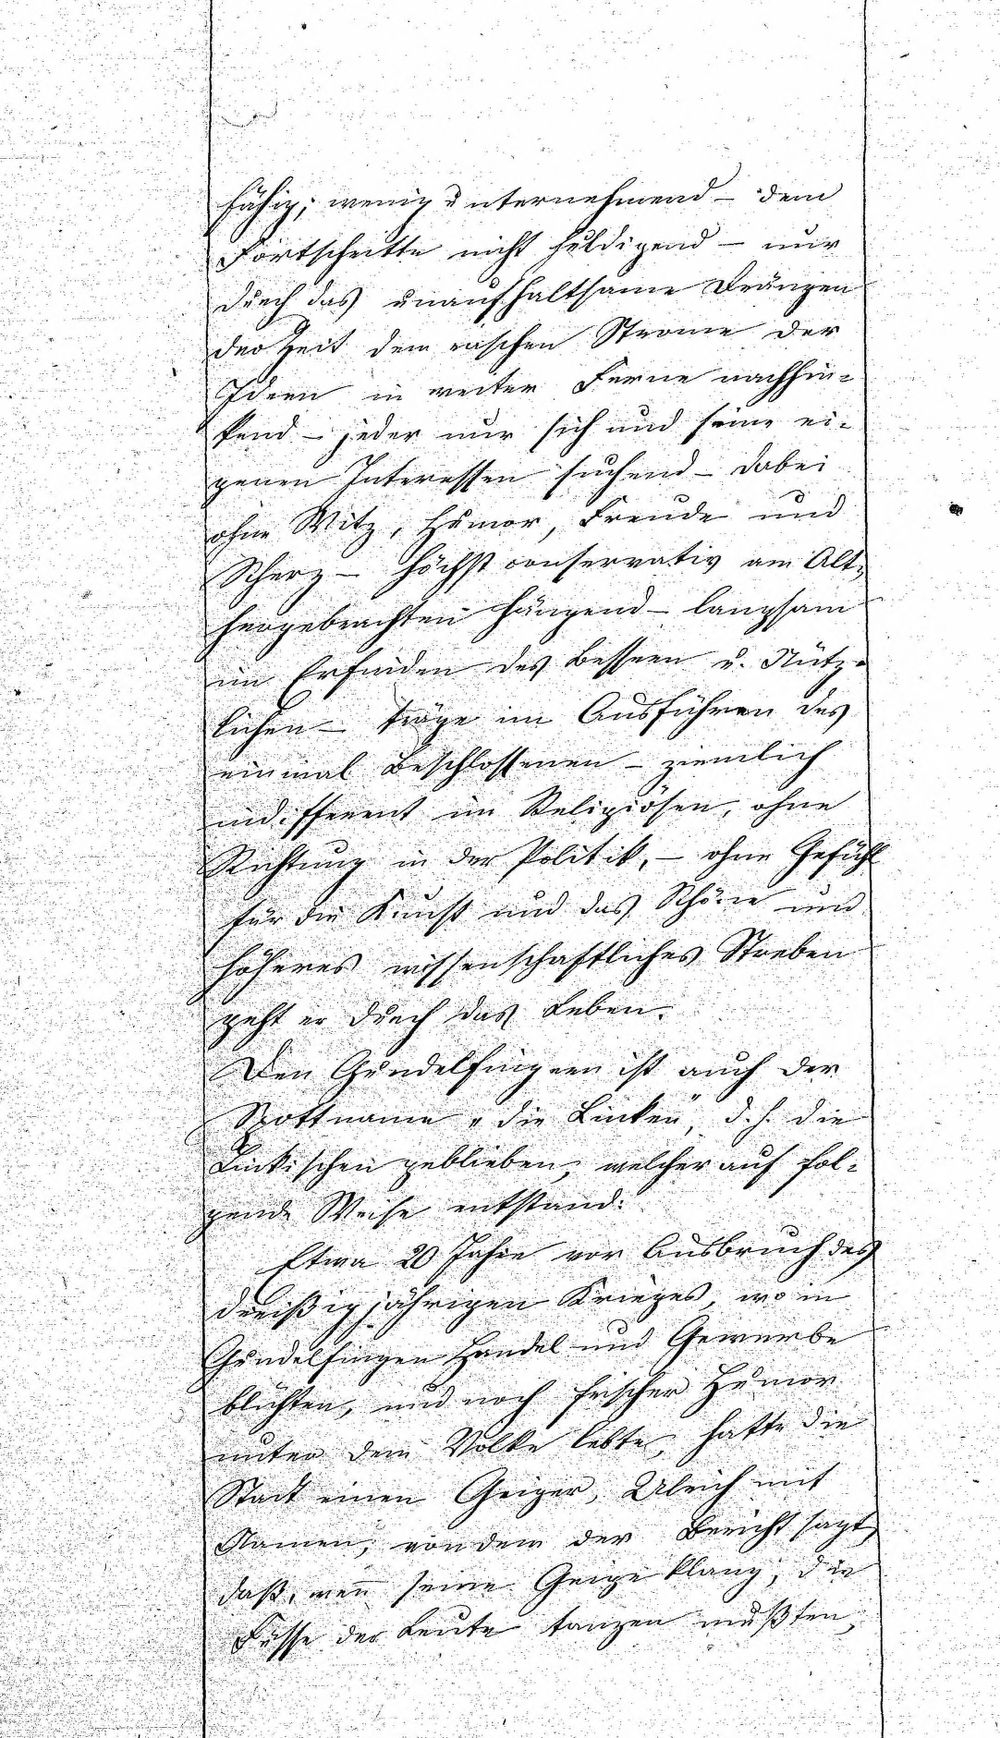 fähig; wenig unternehmend – dem
Fortschritte nicht huldigend – nur
durch das unaufhaltsame Drängen
der Zeit dem raschen Strome der
Ideen in weiter Ferne nachhin-
kend – jeder nur sich und seine ei-
genen Interessen suchend – dabei
ohne Witz, Humor, Freude und
Scherz – höchst conservativ am Alt-
hergebrachten hängend – langsam
im Erfinden des Bessern u. Nütz-
lichen – träge im Ausführen des
einmal Beschlossenen – ziemlich
indifferent im Religiösen, ohne
Richtung in der Politik, – ohne Gefühl
für die Kunst und das Schöne und
höheres wissenschaftliches Streben
geht er durch das Leben.
Den Gundelfingern ist auch der
Spottname „die Linken", d. h. die
Linkischen geblieben, welcher auf fol-
gende Weise entstand:
Etwa 20 Jahre vor Ausbruch des
dreißigjährigen Krieges, wo in
Gundelfingen Handel und Gewerbe
blühten, und noch frischer Humor
unter dem Volke lebte, hatte die
Stadt einen Geiger, Ulrich mit
Namen, von dem der Bericht sagt,
daß, wen̄ seine Geige klang, die
Füsse der Leute tanzen mußten,